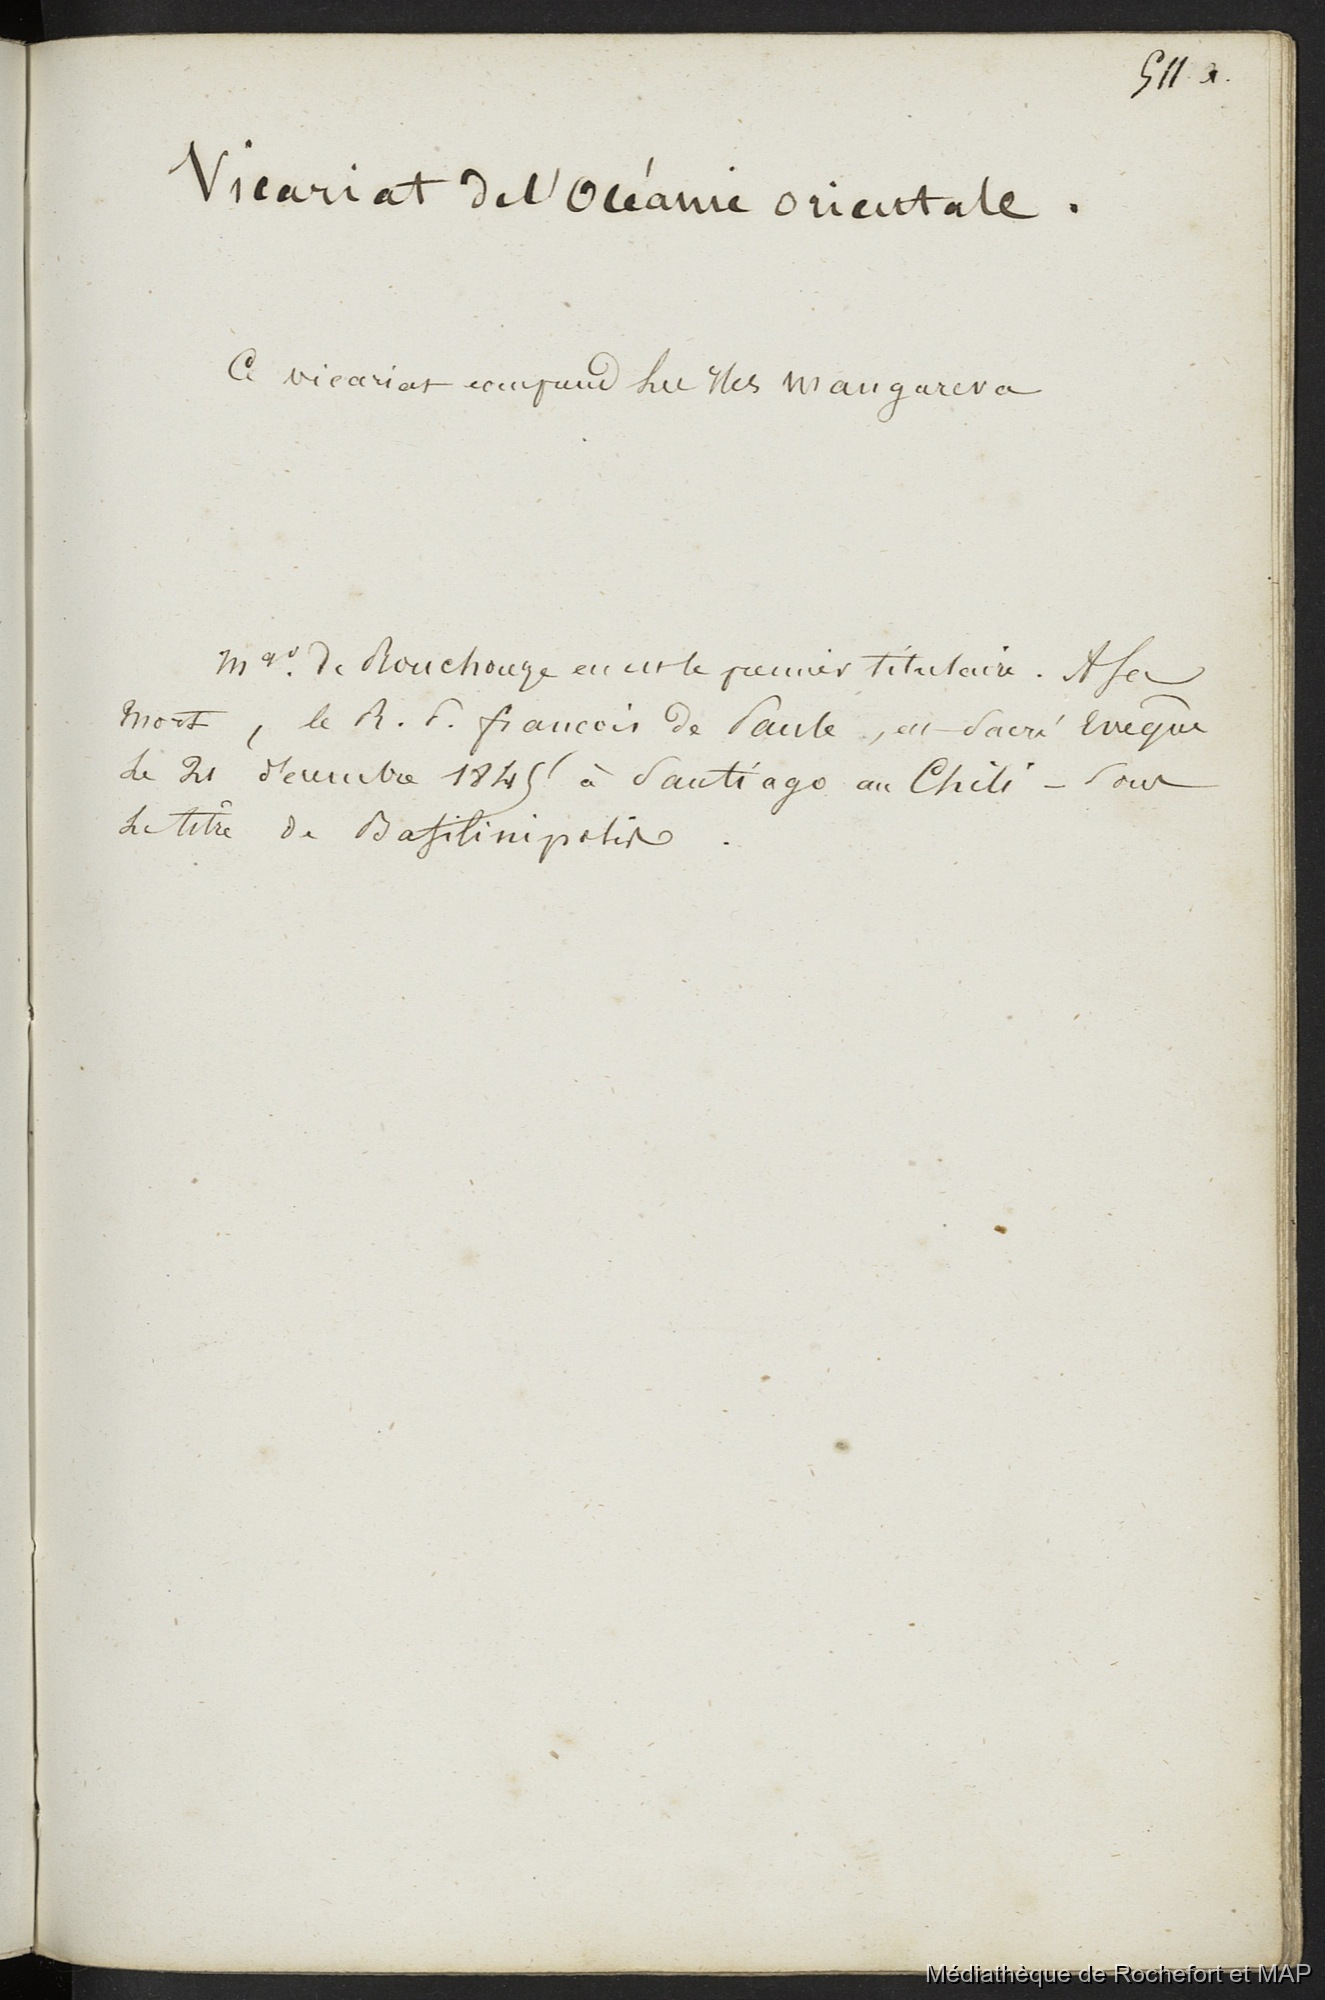 511 a.
Vicariat de l'Océanie orientale .
Ce vicariat comprend les Iles Mangareva
Mgr. de Rouchouze en est le premier titulaire . A sa
mort , le R. P. françois de Paule , est sacré Evêque
le 21 décembre 1845 à Santiago au Chili – sous
le titre de Basilinipolis .
Médiathèque de Rochefort et MAP